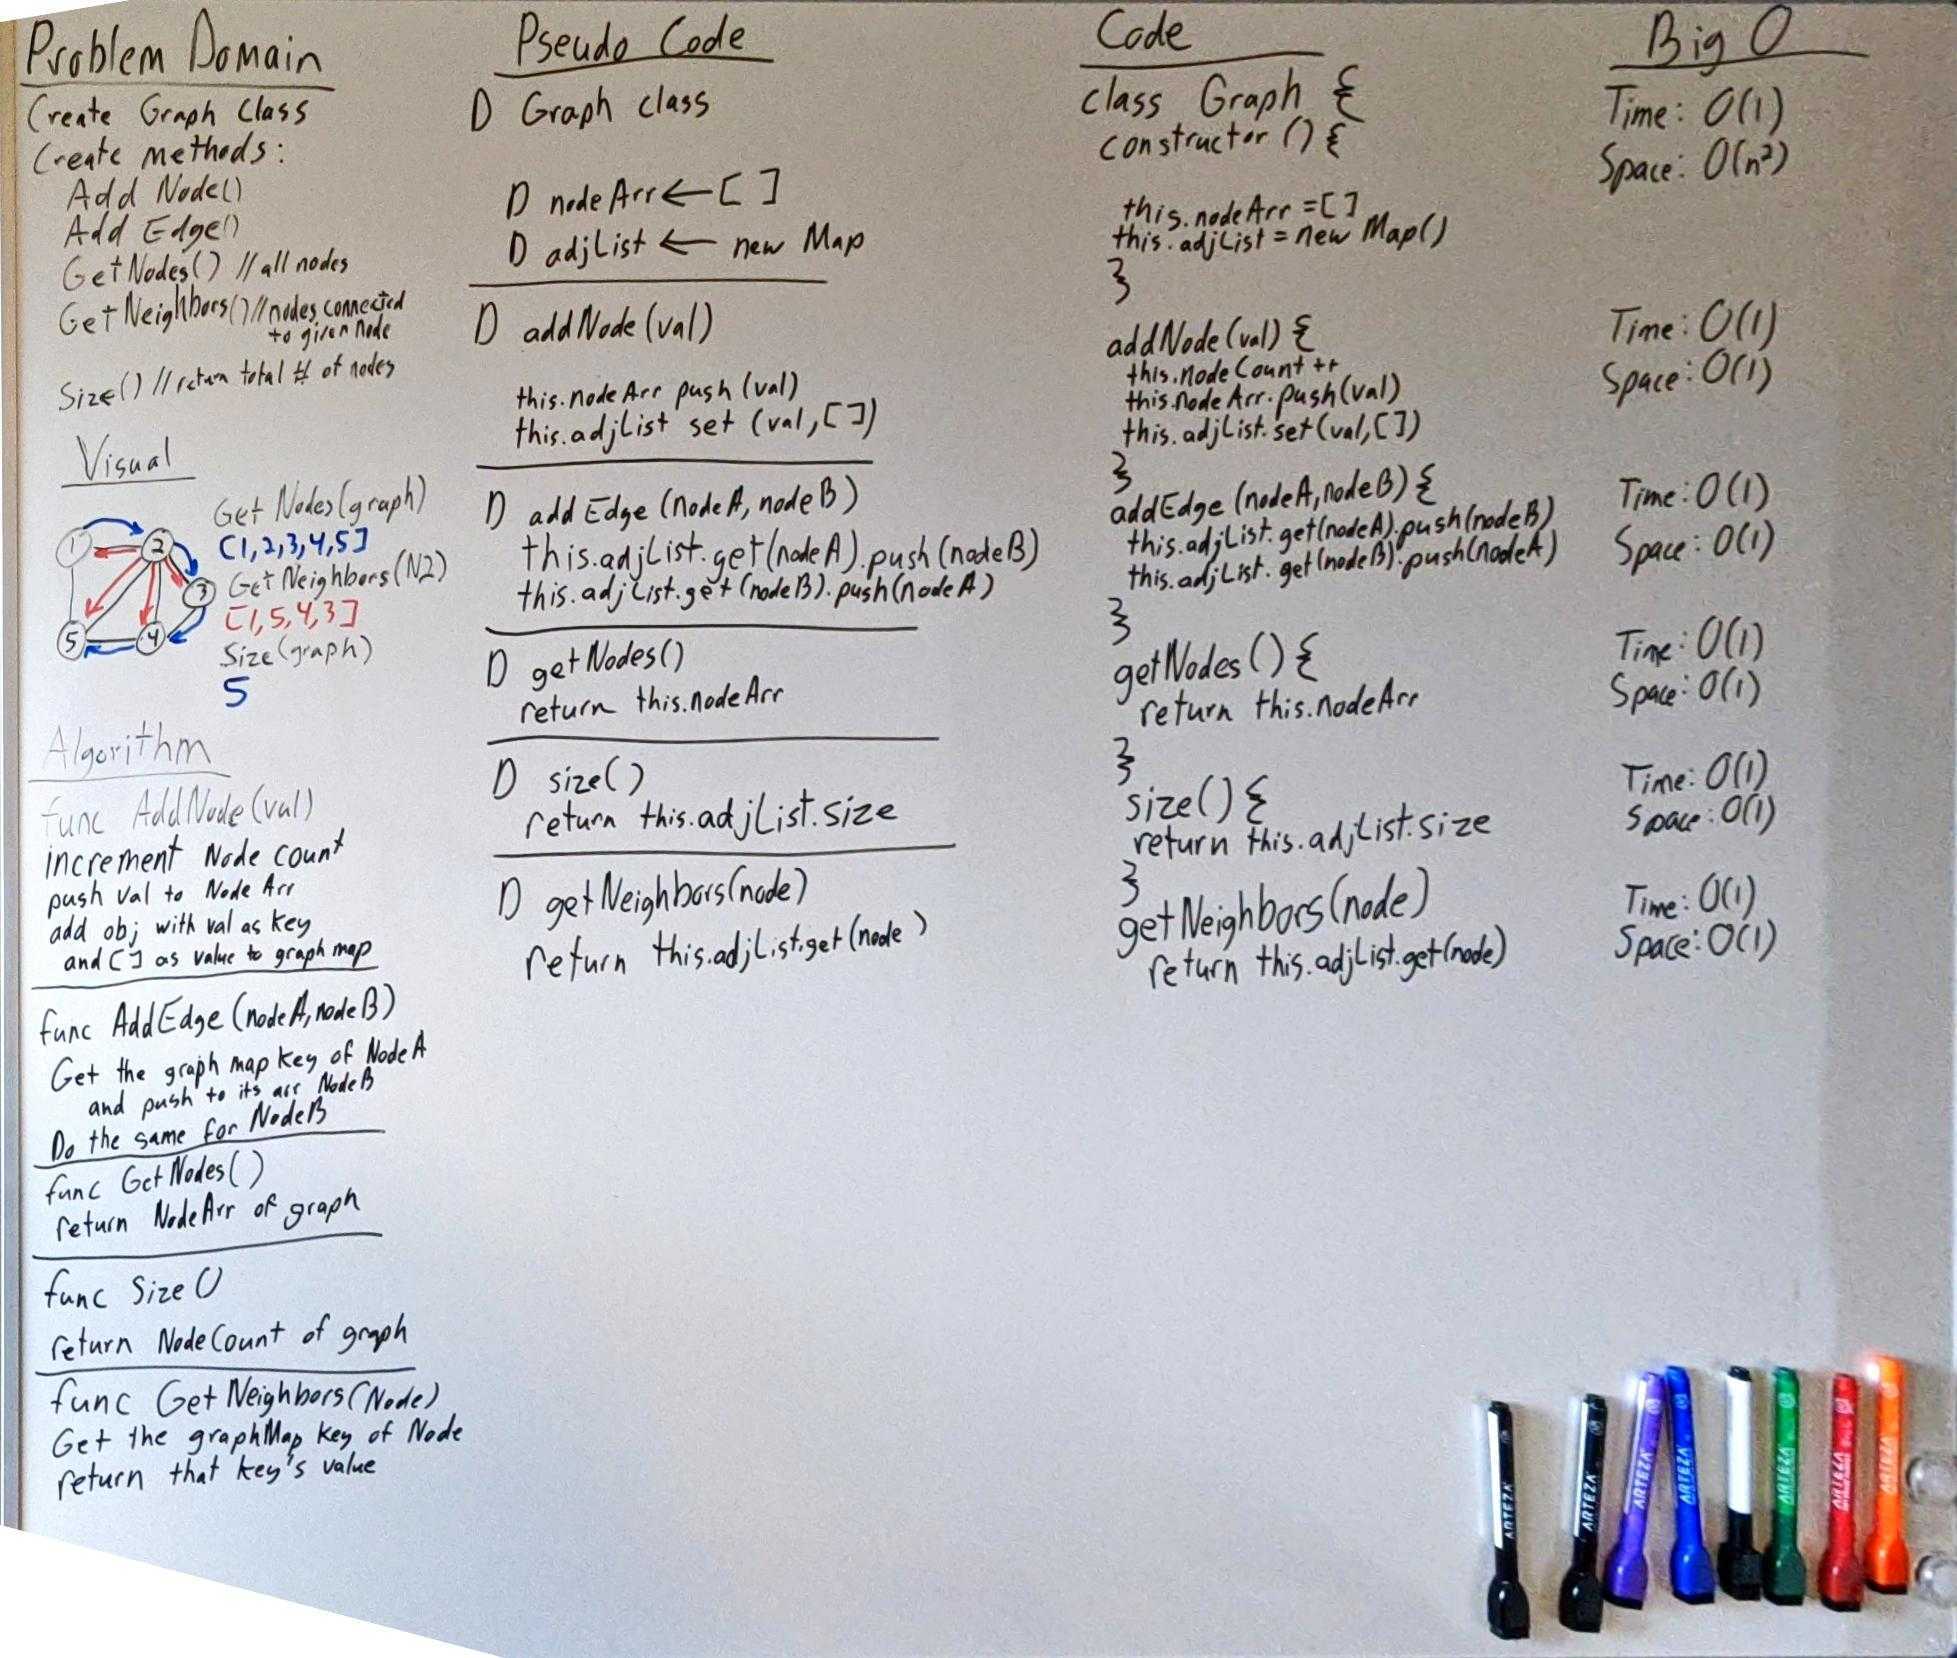 Problem Domain
Create Graph Class
Create methods:
Add Node()
Add Edge()
GetNodes() //all nodes
GetNeighbors() //nodes connected
to given node
Size() //return total # of nodes
Visual
1
2
3
4
5
Get Nodes(graph)
[1,2,3,4,5]
Get Neighbors(N2)
[1,5,4,3]
Size(graph)
5
Algorithm
func AddNode(val)
increment Node count
push val to Node Arr
add obj with val as key
and [] as value to graph map
func AddEdge(nodeA,nodeB)
Get the graph map key of NodeA
and push to its arr NodeB
Do the same for NodeB
func GetNodes()
return NodeArr of graph
func Size()
return NodeCount of graph
func GetNeighbors(Node)
Get the graphMap key of Node
return that key's value
Pseudo Code
D Graph class
D nodeArr ← []
D adjList ← new Map
D addNode(val)
this.nodeArr push(val)
this.adjList set (val,[])
D addEdge(nodeA, nodeB)
this.adjList.get(nodeA).push(nodeB)
this.adjList.get(nodeB).push(nodeA)
D getNodes()
return this.nodeArr
D size()
return this.adjList.size
D getNeighbors(node)
return this.adjList.get(node)
Code
class Graph {
constructor () {
this.nodeArr = []
this.adjList = new Map()
}
addNode(val) {
this.nodeCount ++
this.nodeArr.push(val)
this.adjList.set(val,[])
}
addEdge(nodeA,nodeB) {
this.adjList.get(nodeA).push(nodeB)
this.adjList.get(nodeB).push(nodeA)
}
getNodes() {
return this.nodeArr
}
size() {
return this.adjList.size
}
getNeighbors(node)
return this.adjList.get(node)
Big O
Time: O(1)
Space: O(n²)
Time: O(1)
Space: O(1)
Time: O(1)
Space: O(1)
Time: O(1)
Space: O(1)
Time: O(1)
Space: O(1)
Time: O(1)
Space: O(1)
ARTEZA
ARTEZA
ARTEZA
ARTEZA
ARTEZA
ARTEZA
ARTEZA